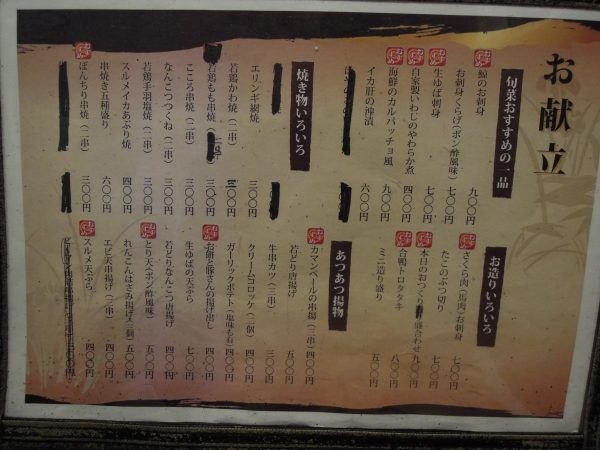 お献立
旬菜おすすめの一品
鯨のお刺身 九〇〇円
お刺身くらげ(ポン酢風味) 七〇〇円
おすすめ 生ゆば刺身 七〇〇円
おすすめ 自家製いわしのやわらか煮 四〇〇円
おすすめ 海鮮のカルパッチョ風 九〇〇円
イカ肝の沖漬 六〇〇円
焼き物いろいろ
エリンギ樹焼 三〇〇円
若鶏かわ焼(二串) 三〇〇円
若鶏もも串焼 三〇〇円
こころ串焼(二串) 三〇〇円
なんこつつくね(二串) 三〇〇円
若鶏手羽塩焼(二串) 三〇〇円
スルメイカあぶり焼 四〇〇円
串焼き五種盛り 六〇〇円
おすすめ ぼんちり串焼(二串) 三〇〇円
お造りいろいろ
おすすめ さくら肉(馬肉)お刺身 七〇〇円
たこのぶつ切り 七〇〇円
おすすめ 本日のおつくり 盛合わせ 九〇〇円
おすすめ 合鴨トロタタキ 八〇〇円
ミニ造り盛り 五〇〇円
あつあつ揚物
カマンベールの串揚(三串) 四〇〇円
若どり肉唐揚げ 五〇〇円
牛串カツ(三串) 三〇〇円
クリームコロッケ(二個) 四〇〇円
ガーリックポテト(塩味も有) 四〇〇円
おすすめ お餅と豚さんの揚げ出し 四〇〇円
生ゆばの天ぷら 七〇〇円
若どりなんこつ唐揚げ 四〇〇円
おすすめ とり天(ポン酢風味) 五〇〇円
れんこんはさみ揚げ 五〇〇円
エビ天串揚げ(三串) 四〇〇円
おすすめ スルメ天ぷら 四〇〇円